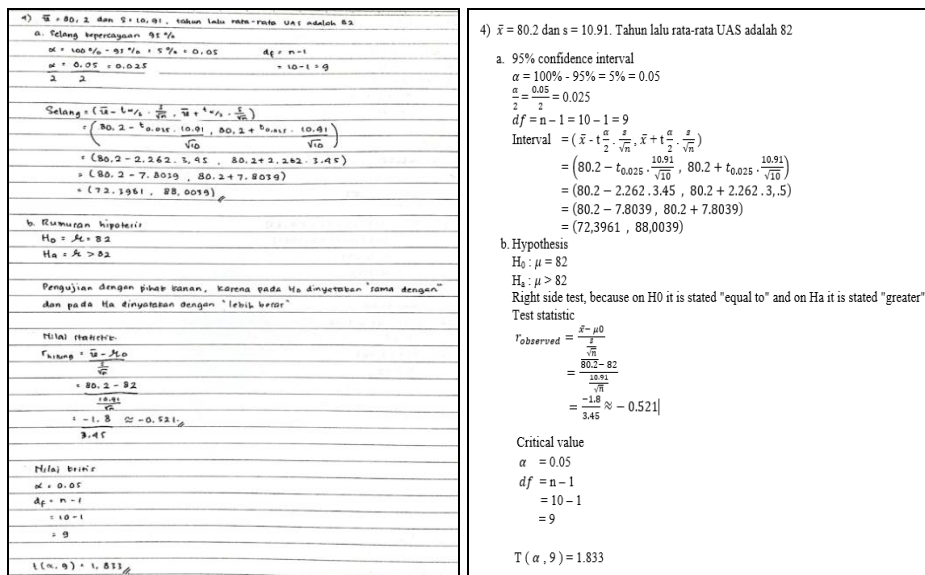 4) x̄ = 80,2 dan s = 10,91. tahun lalu rata-rata UAS adalah 82
a. Selang kepercayaan 95 %
α = 100% - 95% = 5% = 0.05
df = n-1
α/2 = 0.05/2 = 0.025
= 10-1 = 9
Selang = (x̄ - tα/2 . s/√n , x̄ + tα/2 . s/√n)
= (80.2 - t0.025 . 10.91/√10 , 80,2 + t0.025 . 10.91/√10)
= (80.2 - 2.262 . 3,45 , 80.2 + 2.262 . 3.45)
= (80.2 - 7.8039 , 80.2 + 7.8039)
= (72.3961 , 88,0039)
b. Rumusan hipotesis
H0 = μ = 82
Ha = μ > 82
Pengujian dengan pihak kanan, karena pada H0 dinyatakan "sama dengan"
dan pada Ha dinyatakan dengan "lebih besar"
Nilai statistik
rhitung = x̄ - μ0 / s/√n
= 80.2 - 82 / 10.91/√n
= -1.8 / 3.45 ≃ -0.521
Nilai kritis
α = 0.05
df = n - 1
= 10 - 1
= 9
t(α, 9) = 1,833
4) x̄ = 80.2 dan s = 10.91. Tahun lalu rata-rata UAS adalah 82
a. 95% confidence interval
α = 100% - 95% = 5% = 0.05
α/2 = 0.05/2 = 0.025
df = n – 1 = 10 – 1 = 9
Interval = ( x̄ - t α/2 . s/√n , x̄ + t α/2 . s/√n )
= (80.2 − t0.025 . 10.91/√10 , 80.2 + t0.025 . 10.91/√10)
= (80.2 − 2.262 . 3.45 , 80.2 + 2.262 . 3,.5)
= (80.2 − 7.8039 , 80.2 + 7.8039)
= (72,3961 , 88,0039)
b. Hypothesis
H0 : μ = 82
Ha : μ > 82
Right side test, because on H0 it is stated "equal to" and on Ha it is stated "greater"
Test statistic
robserved = x̄− μ0 / s/√n
= 80.2− 82 / 10.91/√n
= −1.8/3.45 ≈ − 0.521
Critical value
α = 0.05
df = n – 1
= 10 – 1
= 9
T ( α , 9 ) = 1.833